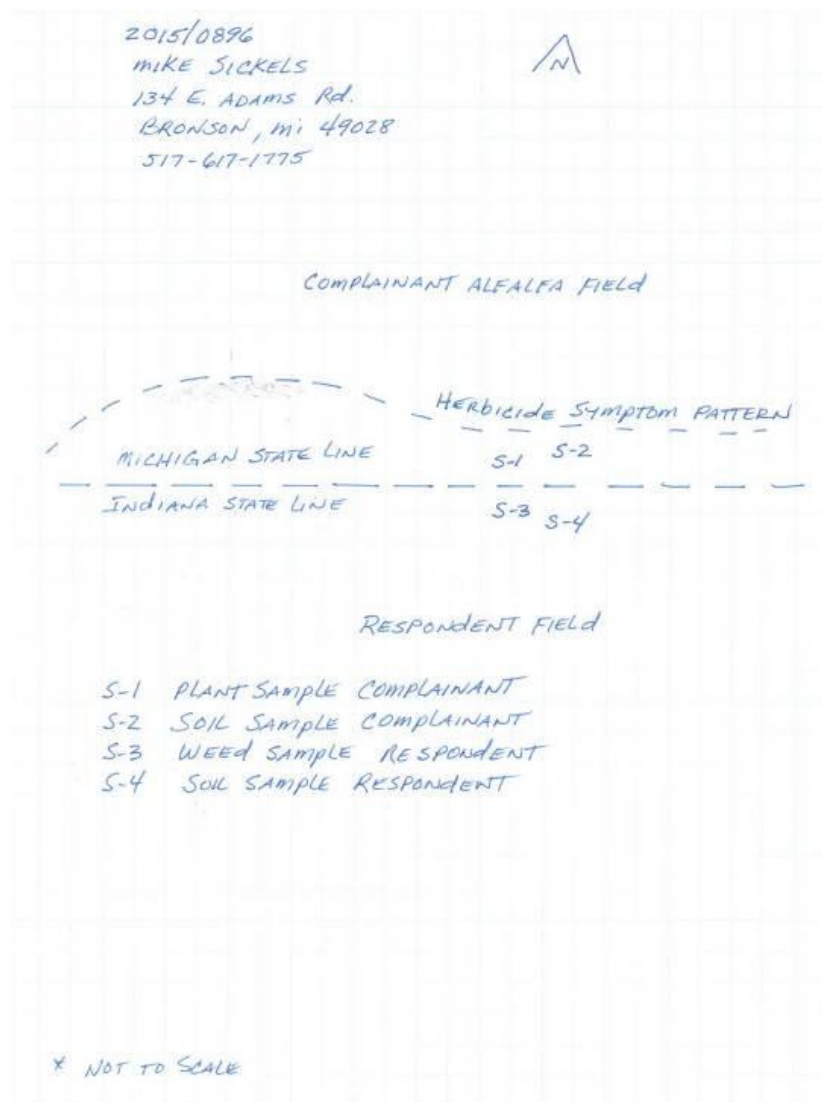 2015/0896
MIKE SICKELS
134 E. ADAMS Rd.
BRONSON, Mi 49028
517-617-1775
N
COMPLAINANT ALFALFA FIELD
HERBICIDE SYMPTOM PATTERN
MICHIGAN STATE LINE
S-1 S-2
INDIANA STATE LINE
S-3 S-4
RESPONDENT FIELD
S-1 PLANT SAMPLE COMPLAINANT
S-2 SOIL SAMPLE COMPLAINANT
S-3 WEED SAMPLE RESPONDENT
S-4 SOIL SAMPLE RESPONDENT
* NOT TO SCALE